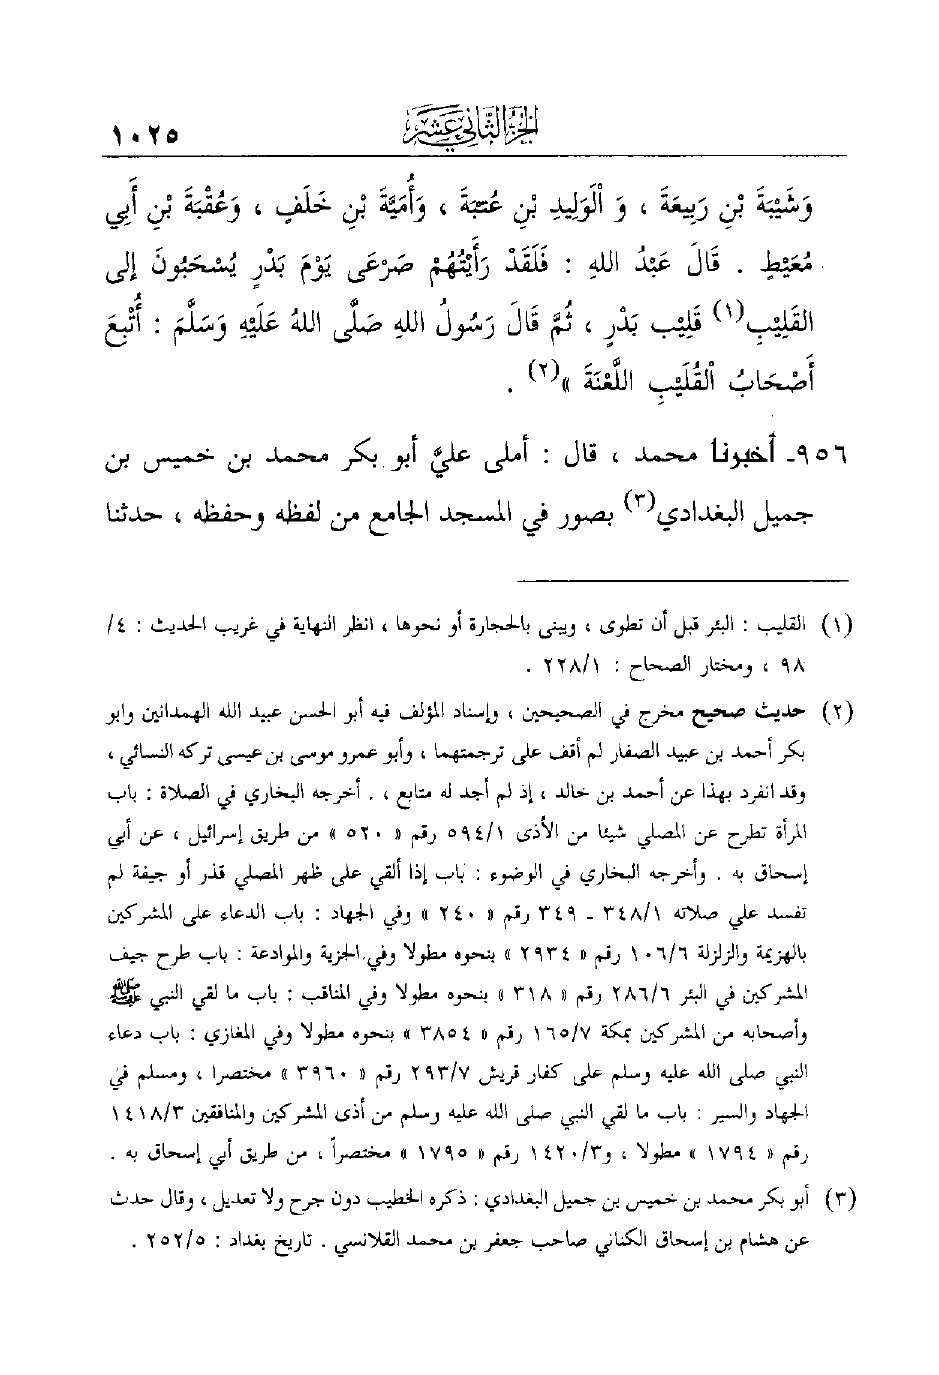 الجزء الثاني عشر
١٠٢٥
وَشَيْبَةَ بْنِ رَبِيعَةَ ، وَ الْوَلِيدِ بْنِ عُتْبَةَ ، وَأُمَيَّةَ بْنِ خَلَفٍ ، وَعُقْبَةَ بْنِ أَبِي
مُعَيْطٍ . قَالَ عَبْدُ اللهِ : فَلَقَدْ رَأَيْتُهُمْ صَرْعَى يَوْمَ بَدْرٍ يُسْحَبُونَ إلى
القَلِيْبِ(١) قَلِيْبِ بَدْرٍ ، ثُمَّ قَالَ رَسُولُ اللهِ صَلَّى اللهُ عَلَيْهِ وَسَلَّمَ : أُتْبِعَ
أَصْحَابُ الْقُلَيْبِ اللَّعْنَةَ »(٢) .
٩٥٦- أخبرنا محمد ، قال : أملى عليَّ أبو بكر محمد بن خميس بن
جميل البغدادي(٣) بصور في المسجد الجامع من لفظه وحفظه ، حدثنا
(١) القليب : البئر قبل أن تطوى ، ويبنى بالحجارة أو نحوها ، انظر النهاية في غريب الحديث : ٤/
٩٨ ، ومختار الصحاح : ٢٢٨/١ .
(٢) حديث صحيح مخرج في الصحيحين ، وإسناد المؤلف فيه أبو الحسن عبيد الله الهمدانين وابو
بكر أحمد بن عبيد الصفار لم أقف على ترجمتهما ، وأبو عمرو موسى بن عيسى تركه النسائي ،
وقد انفرد بهذا عن أحمد بن خالد ، إذ لم أجد له متابع ، . أخرجه البخاري في الصلاة : باب
المرأة تطرح عن المصلي شيئا من الأذى ٥٩٤/١ رقم « ٥٢٠ » من طريق إسرائيل ، عن أبي
إسحاق به . وأخرجه البخاري في الوضوء : باب إذا ألقي على ظهر المصلي قذر أو جيفة لم
تفسد علي صلاته ٣٤٨/١ - ٣٤٩ رقم « ٢٤٠ » وفي الجهاد : باب الدعاء على المشركين
بالهزيمة والزلزلة ١٠٦/٦ رقم « ٢٩٣٤ » بنحوه مطولا وفي الجزية والموادعة : باب طرح جيف
المشركين في البئر ٢٨٦/٦ رقم « ٣١٨ » بنحوه مطولا وفي المناقب : باب ما لقي النبي ﷺ
وأصحابه من المشركين بمكة ١٦٥/٧ رقم « ٣٨٥٤ » بنحوه مطولا وفي المغازي : باب دعاء
النبي صلى الله عليه وسلم على كفار قريش ٢٩٣/٧ رقم « ٣٩٦٠ » مختصرا ، ومسلم في
الجهاد والسير : باب ما لقي النبي صلى الله عليه وسلم من أذى المشركين والمنافقين ١٤١٨/٣
رقم « ١٧٩٤ » مطولا ، و١٤٢٠/٣ رقم « ١٧٩٥ » مختصراً ، من طريق أبي إسحاق به .
(٣) أبو بكر محمد بن خميس بن جميل البغدادي : ذكره الخطيب دون جرح ولا تعديل ، وقال حدث
عن هشام بن إسحاق الكناني صاحب جعفر بن محمد القلانسي . تاريخ بغداد : ٢٥٢/٥ .